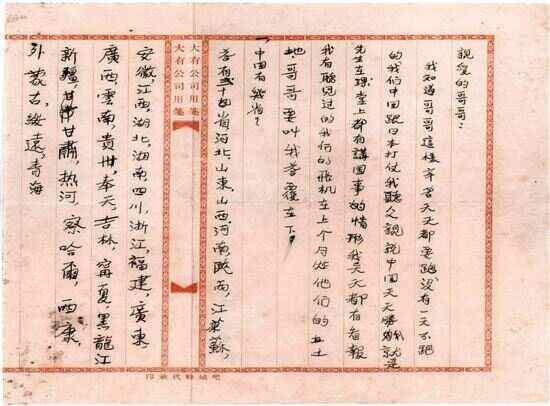 親愛的哥哥:
我知道哥哥這樣辛苦天天都要跑沒有一天不跑
的我们中国跟日本打仗我聽人說說中国天天勝利就是
先生在課堂上都有講国事的情形我天天都有看報
我有聽見过的我们的飛机在上个月处他们的土
地,哥哥要叫我答覆在下,
中国有幾省?
答有二十四省河北,山東,山西,河南,陝西,江蘇,
大有公司用箋
大有公司用箋
安徽,江西,湖北,湖南,四川,浙江,福建,廣東,
廣西,雲南,貴州,奉天,吉林,甯夏,黑龍江
新疆,甘肅,热河,察哈爾,西康,
外蒙古,綏遠,青海